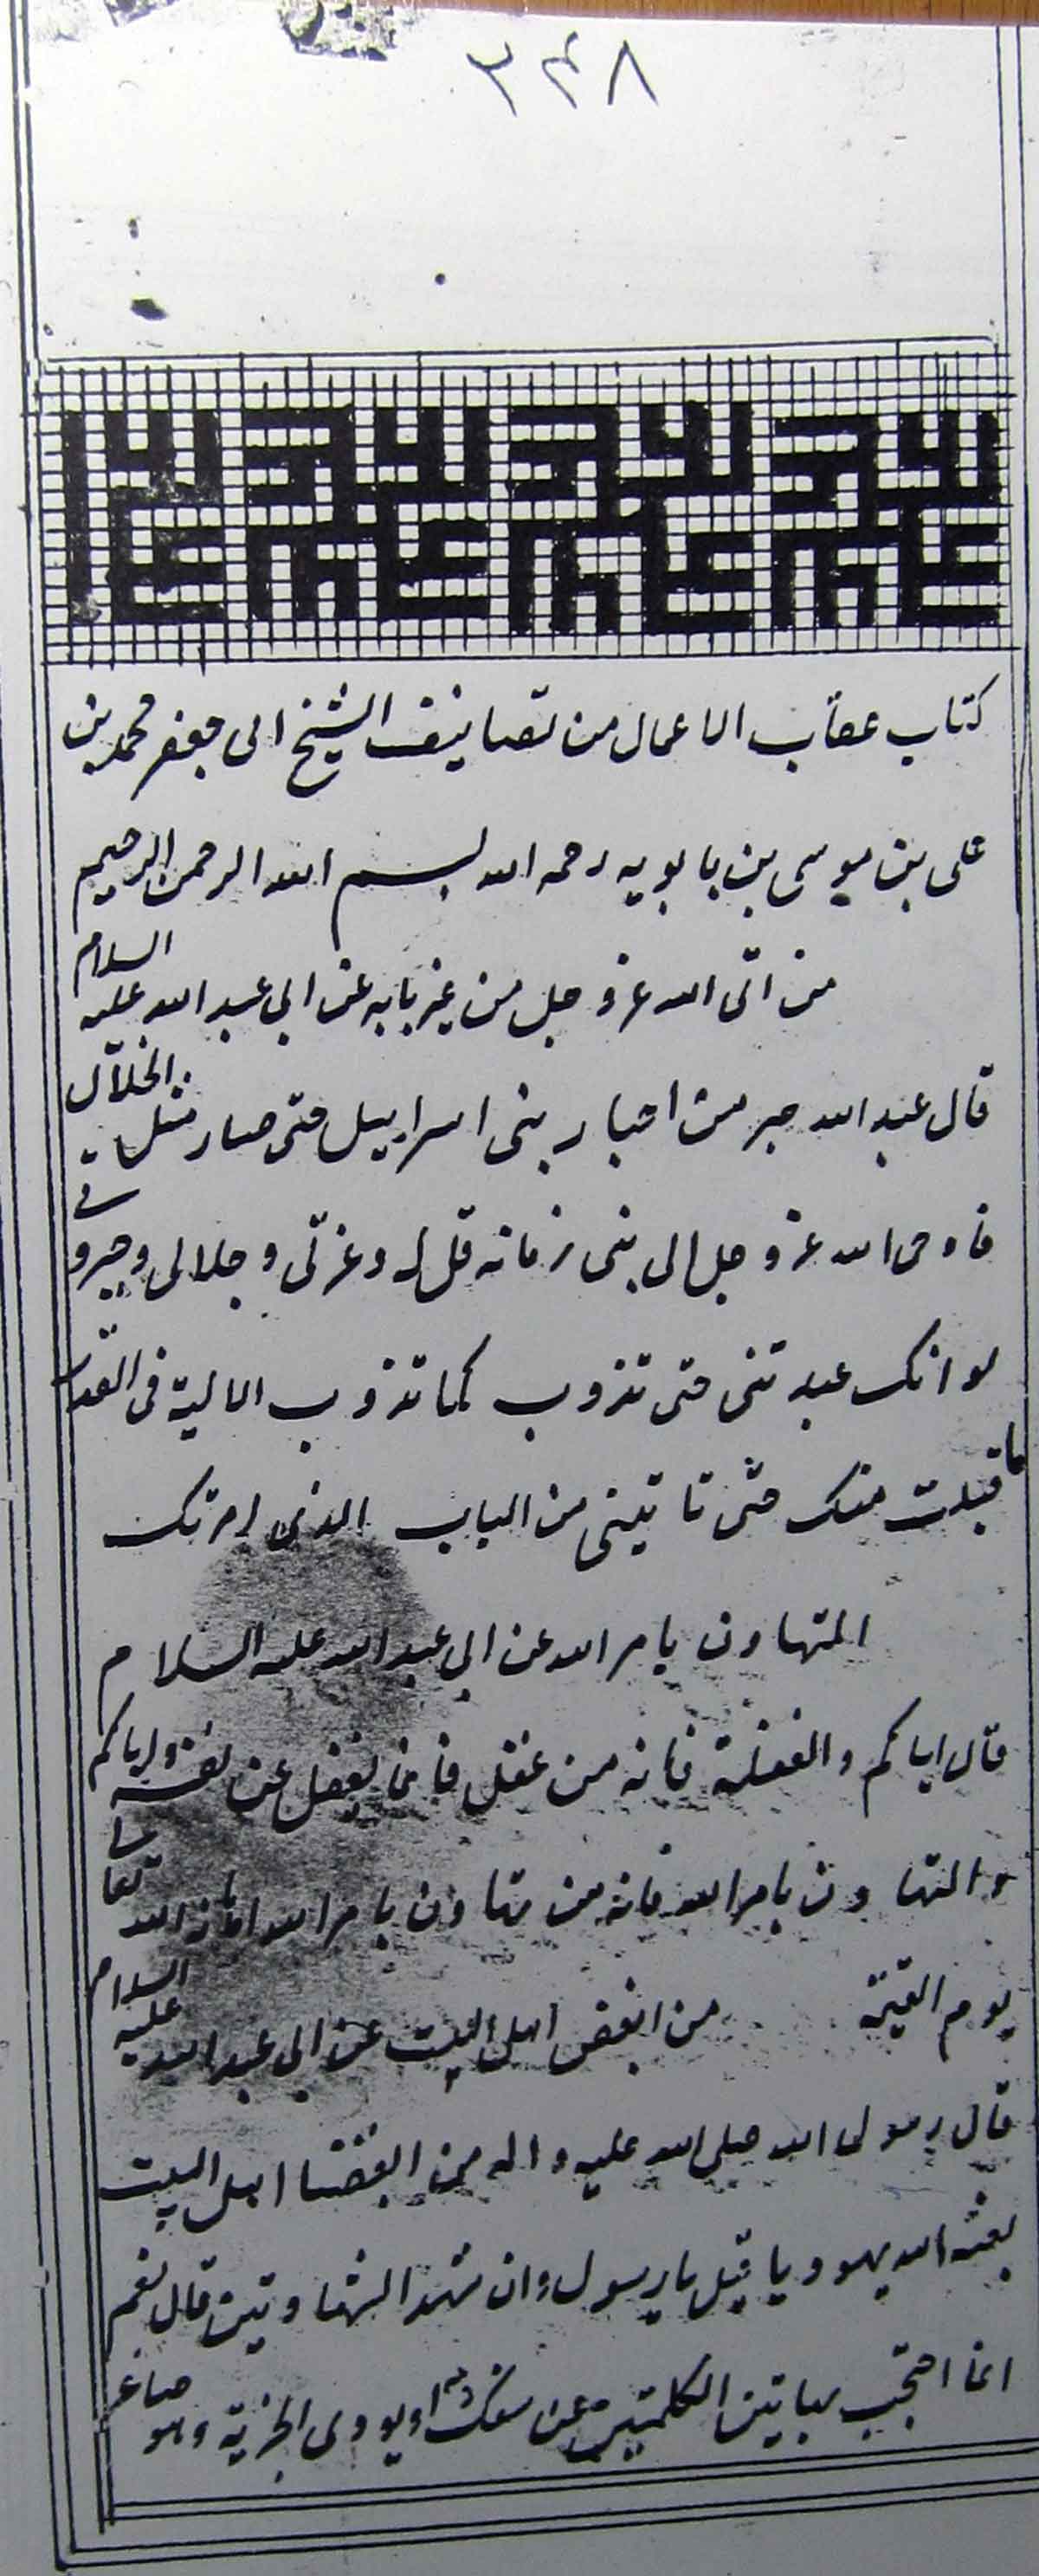 ۳۴۸
كتاب عقاب الاعمال من تصانيف الشيخ ابى جعفر محمد بن
على بن موسى بن بابويه رحمه الله بسم الله الرحمن الرحيم
من اتى الله عز و جل من غير بابه عن ابي عبد الله عليه السلام
قال عبد الله حبر من احبار بنى اسراييل حتى صار مثل الخلال
فاوحى الله عز و جل الى نبى زمانه قل له وعزتى و جلالى وجبروتى
لو انك عبدتنى حتى تذوب كما تذوب الالية فى القدر
ما قبلت منك حتى تاتينى من الباب الذى امرتك
المتهاون بامر الله عن ابي عبد الله عليه السلام
قال اياكم والغفلة فانه من غفل فانما يغفل عن نفسه واياكم
والتهاون بامر الله فانه من تهاون بامر الله اهانه الله تعالى
يوم القيمة من ابغض اهل البيت عن ابي عبد الله عليه السلام
قال رسول الله صلى الله عليه و اله من ابغضنا اهل البيت
بعثه الله يهوديا قيل يا رسول وان شهد الشهادتين قال نعم
انما احتجب بهاتين الكلمتين عن سفك دمه او يودى الجزية وهو صاغر